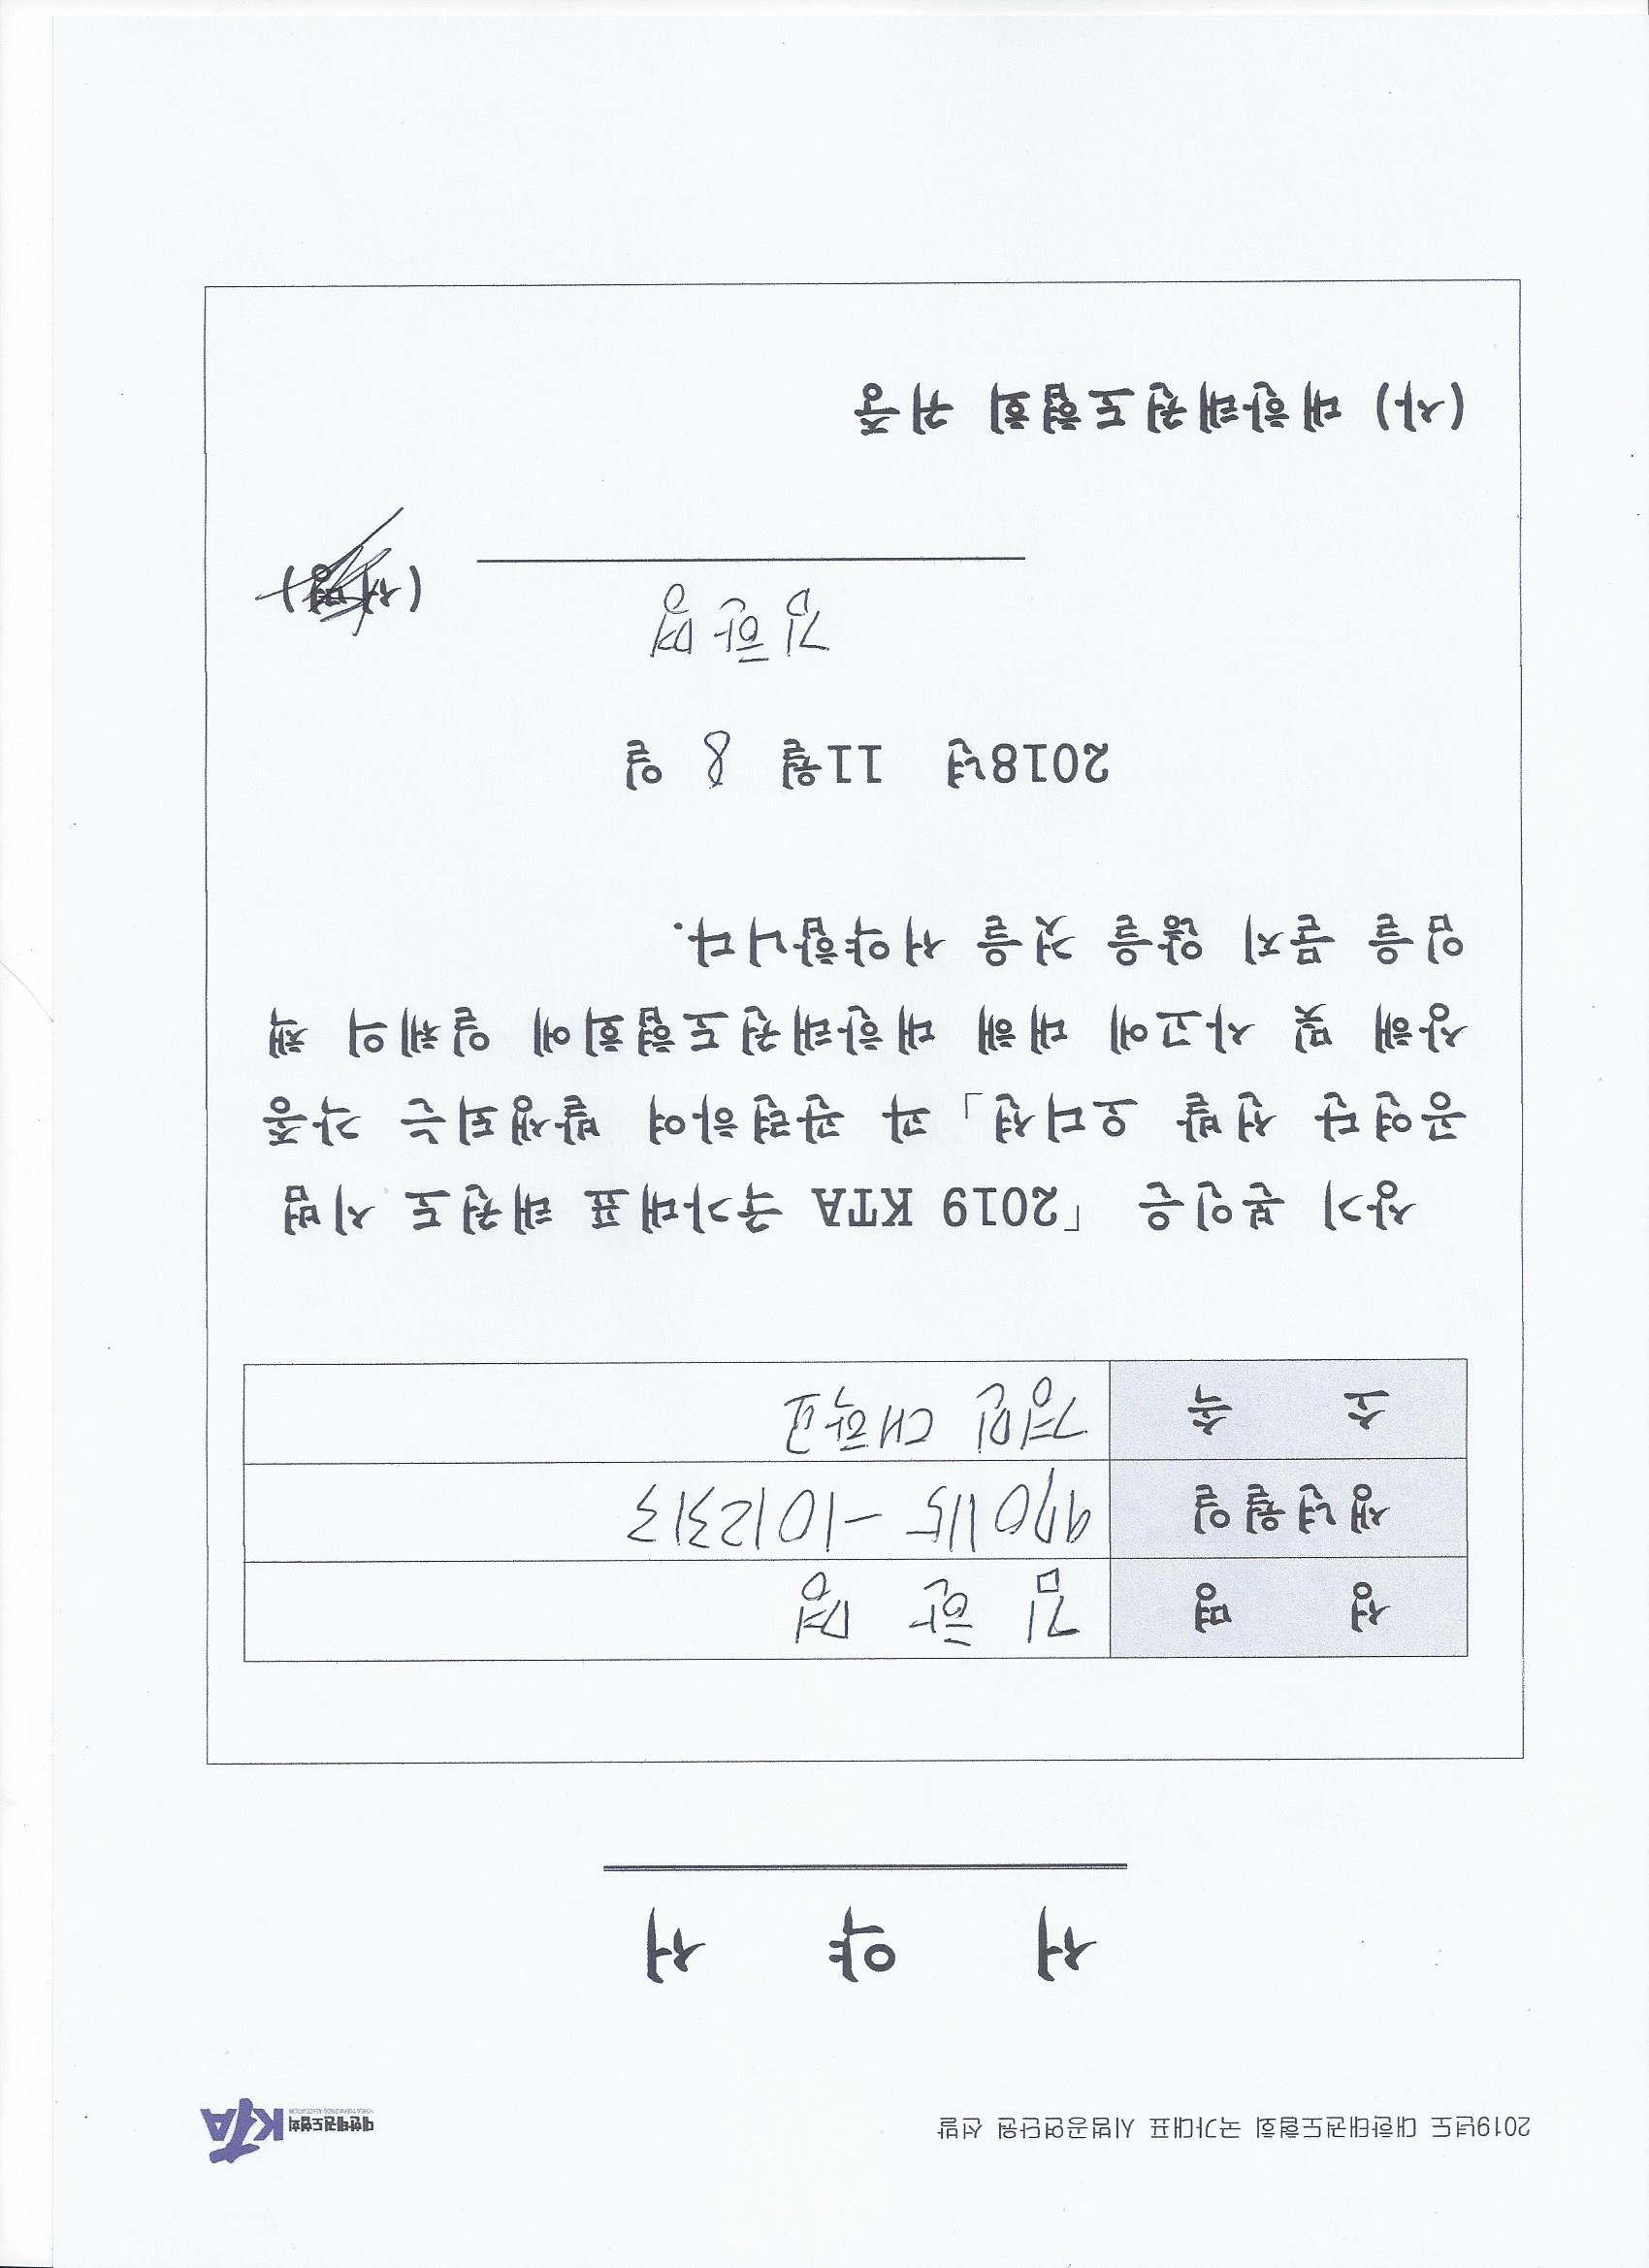 2019년도 대한태권도협회 국가대표 시범공연단원 선발
KTA 대한태권도협회
KOREA TAEKWONDO ASSOCIATION
서 약 서
성 명 김 한 명
생년월일 970115-1012313
소 속 경민 대학교
상기 본인은 「2019 KTA 국가대표 태권도 시범
공연단 선발 오디션」과 관련하여 발생되는 각종
상해 및 사고에 대해 대한태권도협회에 일체의 책
임을 묻지 않을 것을 서약합니다.
2018년 11월 8 일
김한명 (서명)
(사) 대한태권도협회 귀중